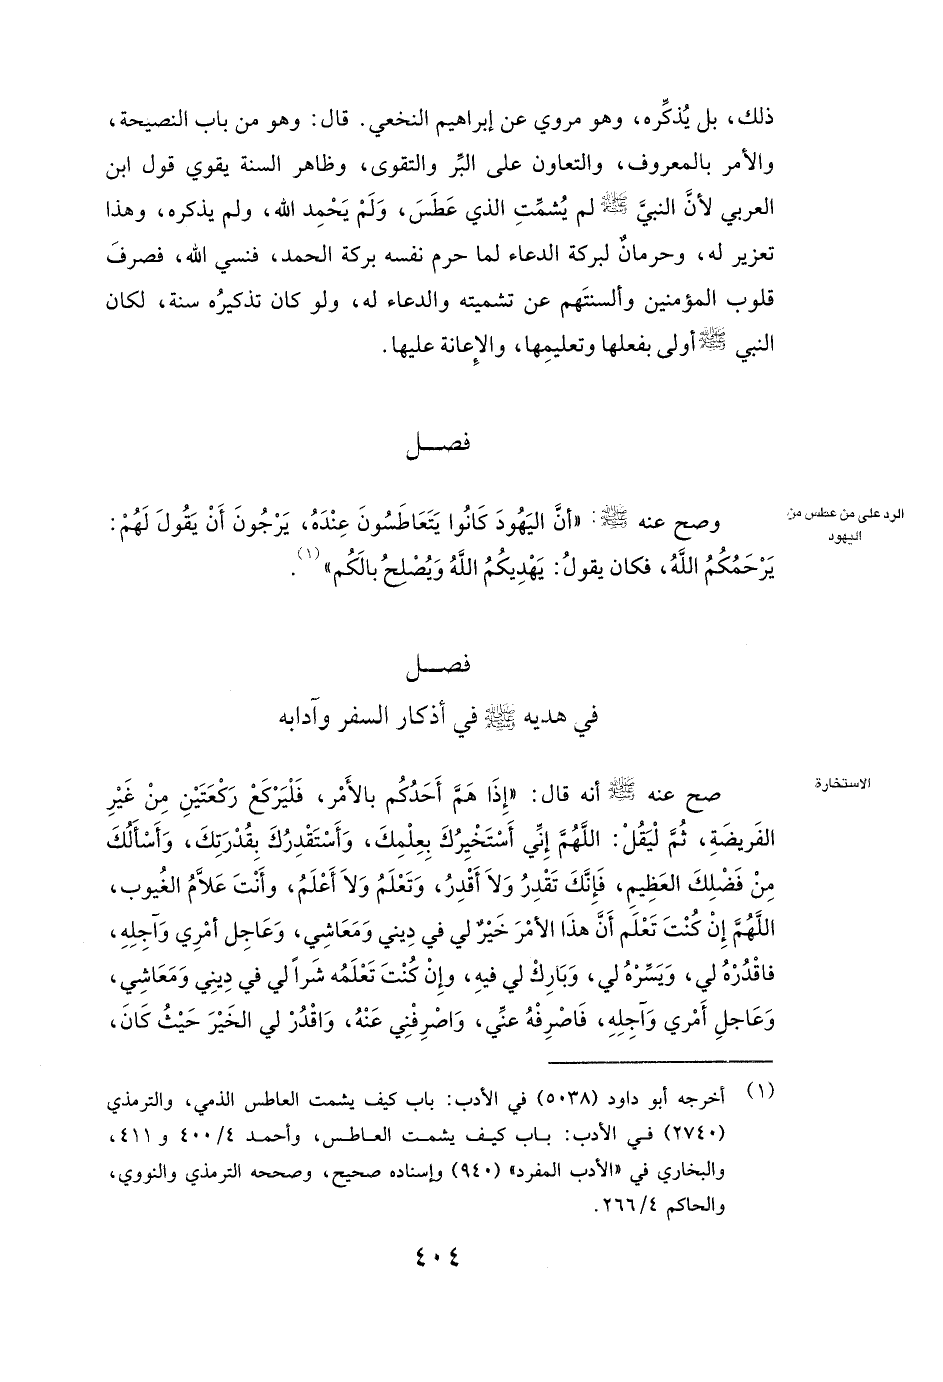 ذلك، بل يُذكِّره، وهو مروي عن إبراهيم النخعي. قال: وهو من باب النصيحة،
والأمر بالمعروف، والتعاون على البِّر والتقوى، وظاهر السنة يقوي قول ابن
العربي لأنَّ النبيَّ ﷺ لم يُشمِّتِ الذي عَطَسَ، وَلَمْ يَحْمِد الله، ولم يذكره، وهذا
تعزير له، وحرمانٌ لبركة الدعاء لما حرم نفسه بركة الحمد، فنسي الله، فصرفَ
قلوب المؤمنين وألسنتَهم عن تشميته والدعاء له، ولو كان تذكيرُه سنة، لكان
النبي ﷺ أولى بفعلها وتعليمِها، والإِعانة عليها.
فصـــل
الرد على من عطس من
اليهود
وصح عنه ﷺ: «أنَّ اليَهُودَ كَانُوا يَتَعَاطَسُونَ عِنْدَهُ، يَرْجُونَ أَنْ يَقُولَ لَهُمْ:
يَرْحَمُكُمُ اللَّهُ، فكان يقولُ: يَهْدِيكُمُ اللَّهُ وَيُصْلِحُ بالَكُم»(١).
فصـــل
في هديه ﷺ في أذكار السفر وآدابه
الاستخارة
صح عنه ﷺ أنه قال: «إِذَا هَمَّ أَحَدُكُم بالأَمْر، فَلْيَرْكَعْ رَكْعَتَيْنِ مِنْ غَيْرِ
الفَريضَةِ، ثُمَّ لْيَقُلْ: اللَّهُمَّ إِنِّي أَسْتَخِيرُكَ بِعِلْمِكَ، وَأَسْتَقْدِرُكَ بِقُدْرَتِكَ، وَأَسْأَلُكَ
مِنْ فَضْلِكَ العَظِيمِ، فَإِنَّكَ تَقْدِرُ وَلاَ أَقْدِرُ، وَتَعْلَمُ وَلاَ أَعْلَمُ، وأَنْتَ عَلاَّمُ الغُيوب،
اللَّهُمَّ إِنْ كُنْتَ تَعْلَم أَنَّ هذَا الأَمْرَ خَيْرٌ لي في دِيني وَمَعَاشِي، وَعَاجِل أَمْرِي وَآجِلِهِ،
فاقْدُرْهُ لي، وَيَسِّرْهُ لي، وَبَارِكْ لي فيهِ، وإِنْ كُنْتَ تَعْلَمُه شَراً لي في دِيني وَمَعَاشِي،
وَعَاجلِ أَمْري وَآجِلِهِ، فَاصْرِفْهُ عنِّي، وَاصْرِفْنِي عَنْهُ، وَاقْدُرْ لي الخَيْرَ حَيْثُ كَانَ،
(١) أخرجه أبو داود (٥٠٣٨) في الأدب: باب كيف يشمت العاطس الذمي، والترمذي
(٢٧٤٠) فـي الأدب: بـاب كيـف يشمـت العـاطس، وأحمـد ٤/ ٤٠٠ و ٤١١،
والبخاري في «الأدب المفرد» (٩٤٠) وإسناده صحيح، وصححه الترمذي والنووي،
والحاكم ٤/ ٢٦٦.
٤٠٤